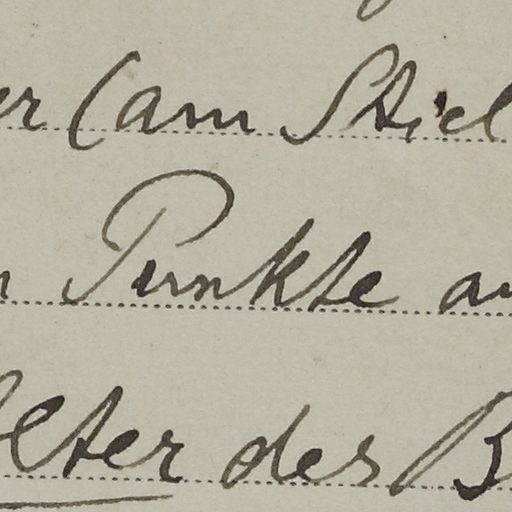 er (am Stiel
n Punkte au
lter des B